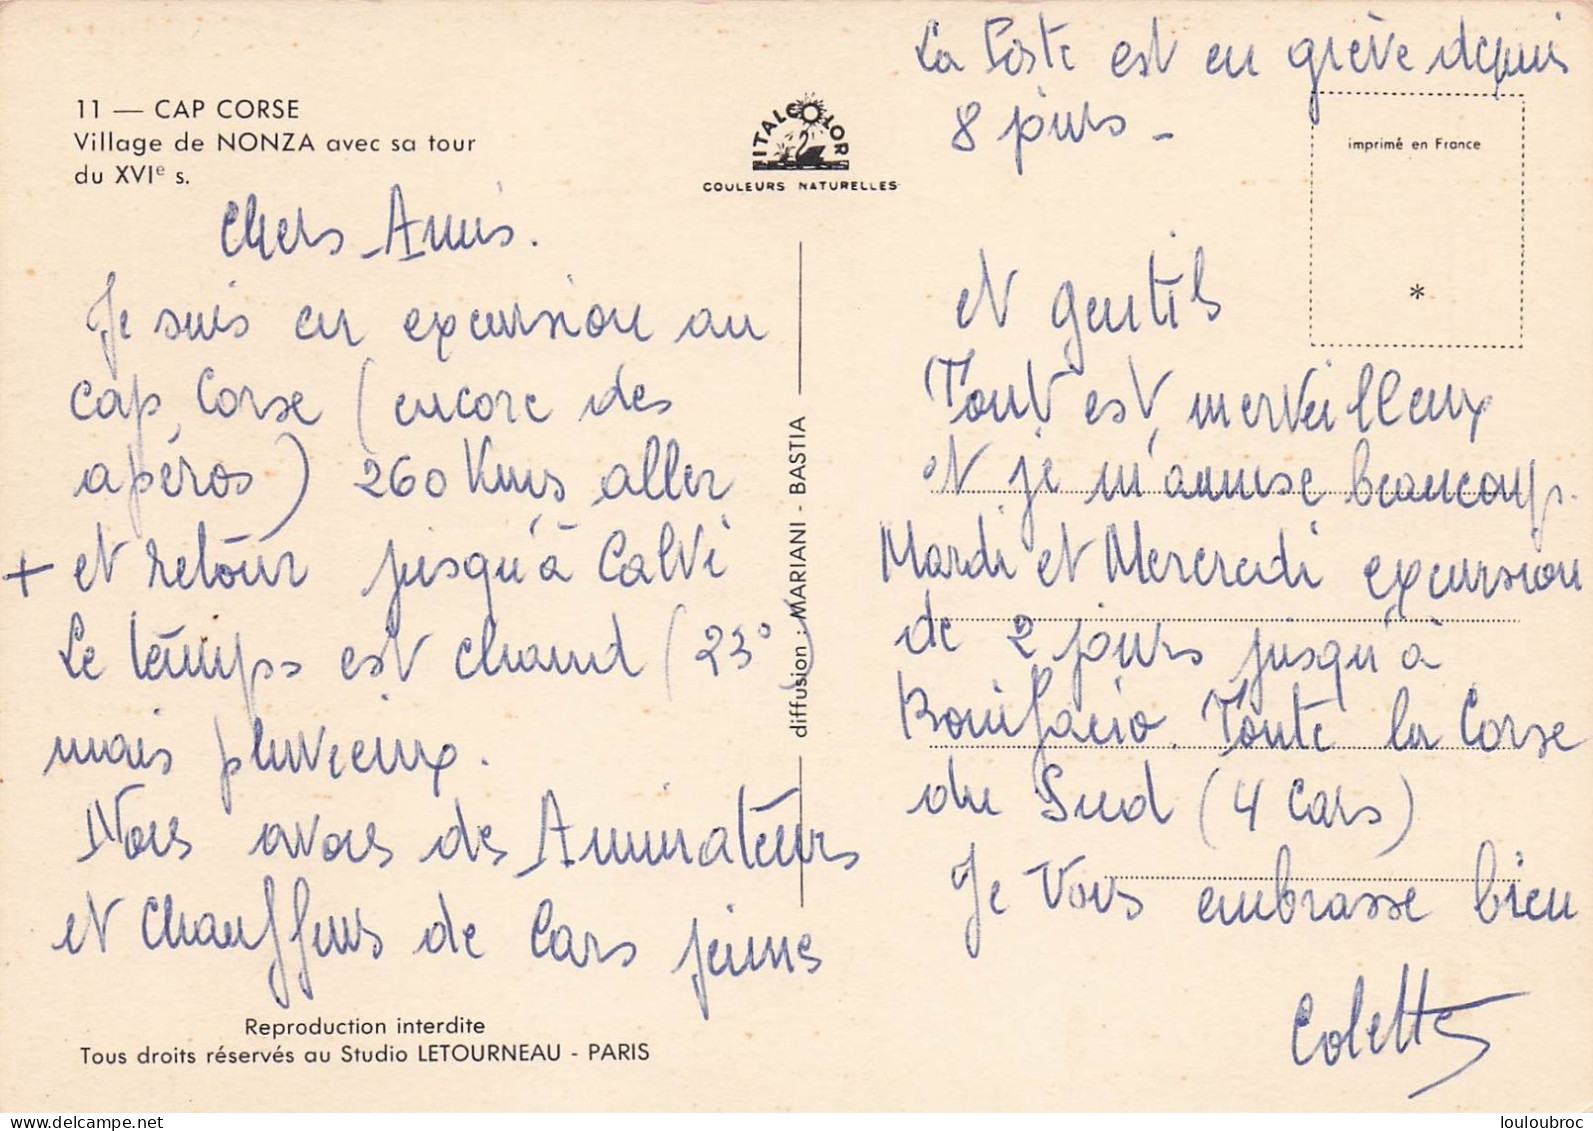 11 — CAP CORSE
Village de NONZA avec sa tour
du XVIe s.
ITALCOLOR
COULEURS NATURELLES
La Poste est en grève depuis
8 jours -
imprimé en France
*
Chers Amis.
Je suis en excursion au
cap Corse (encore des
apéros) 260 Kms aller
+ et retour jusqu'à Calvi
Le temps est chaud (23°)
mais pluvieux.
Nous avons des Animateurs
et chauffeurs de Cars jeunes
diffusion : MARIANI - BASTIA
et gentils
Tout est merveilleux
et je m'amuse beaucoup.
Mardi et Mercredi excursion
de 2 jours jusqu'à
Bonifacio. Toute la Corse
du Sud (4 Cars)
Je Vous embrasse bien
Colette
Reproduction interdite
Tous droits réservés au Studio LETOURNEAU - PARIS
www.delcampe.net
louloubroc